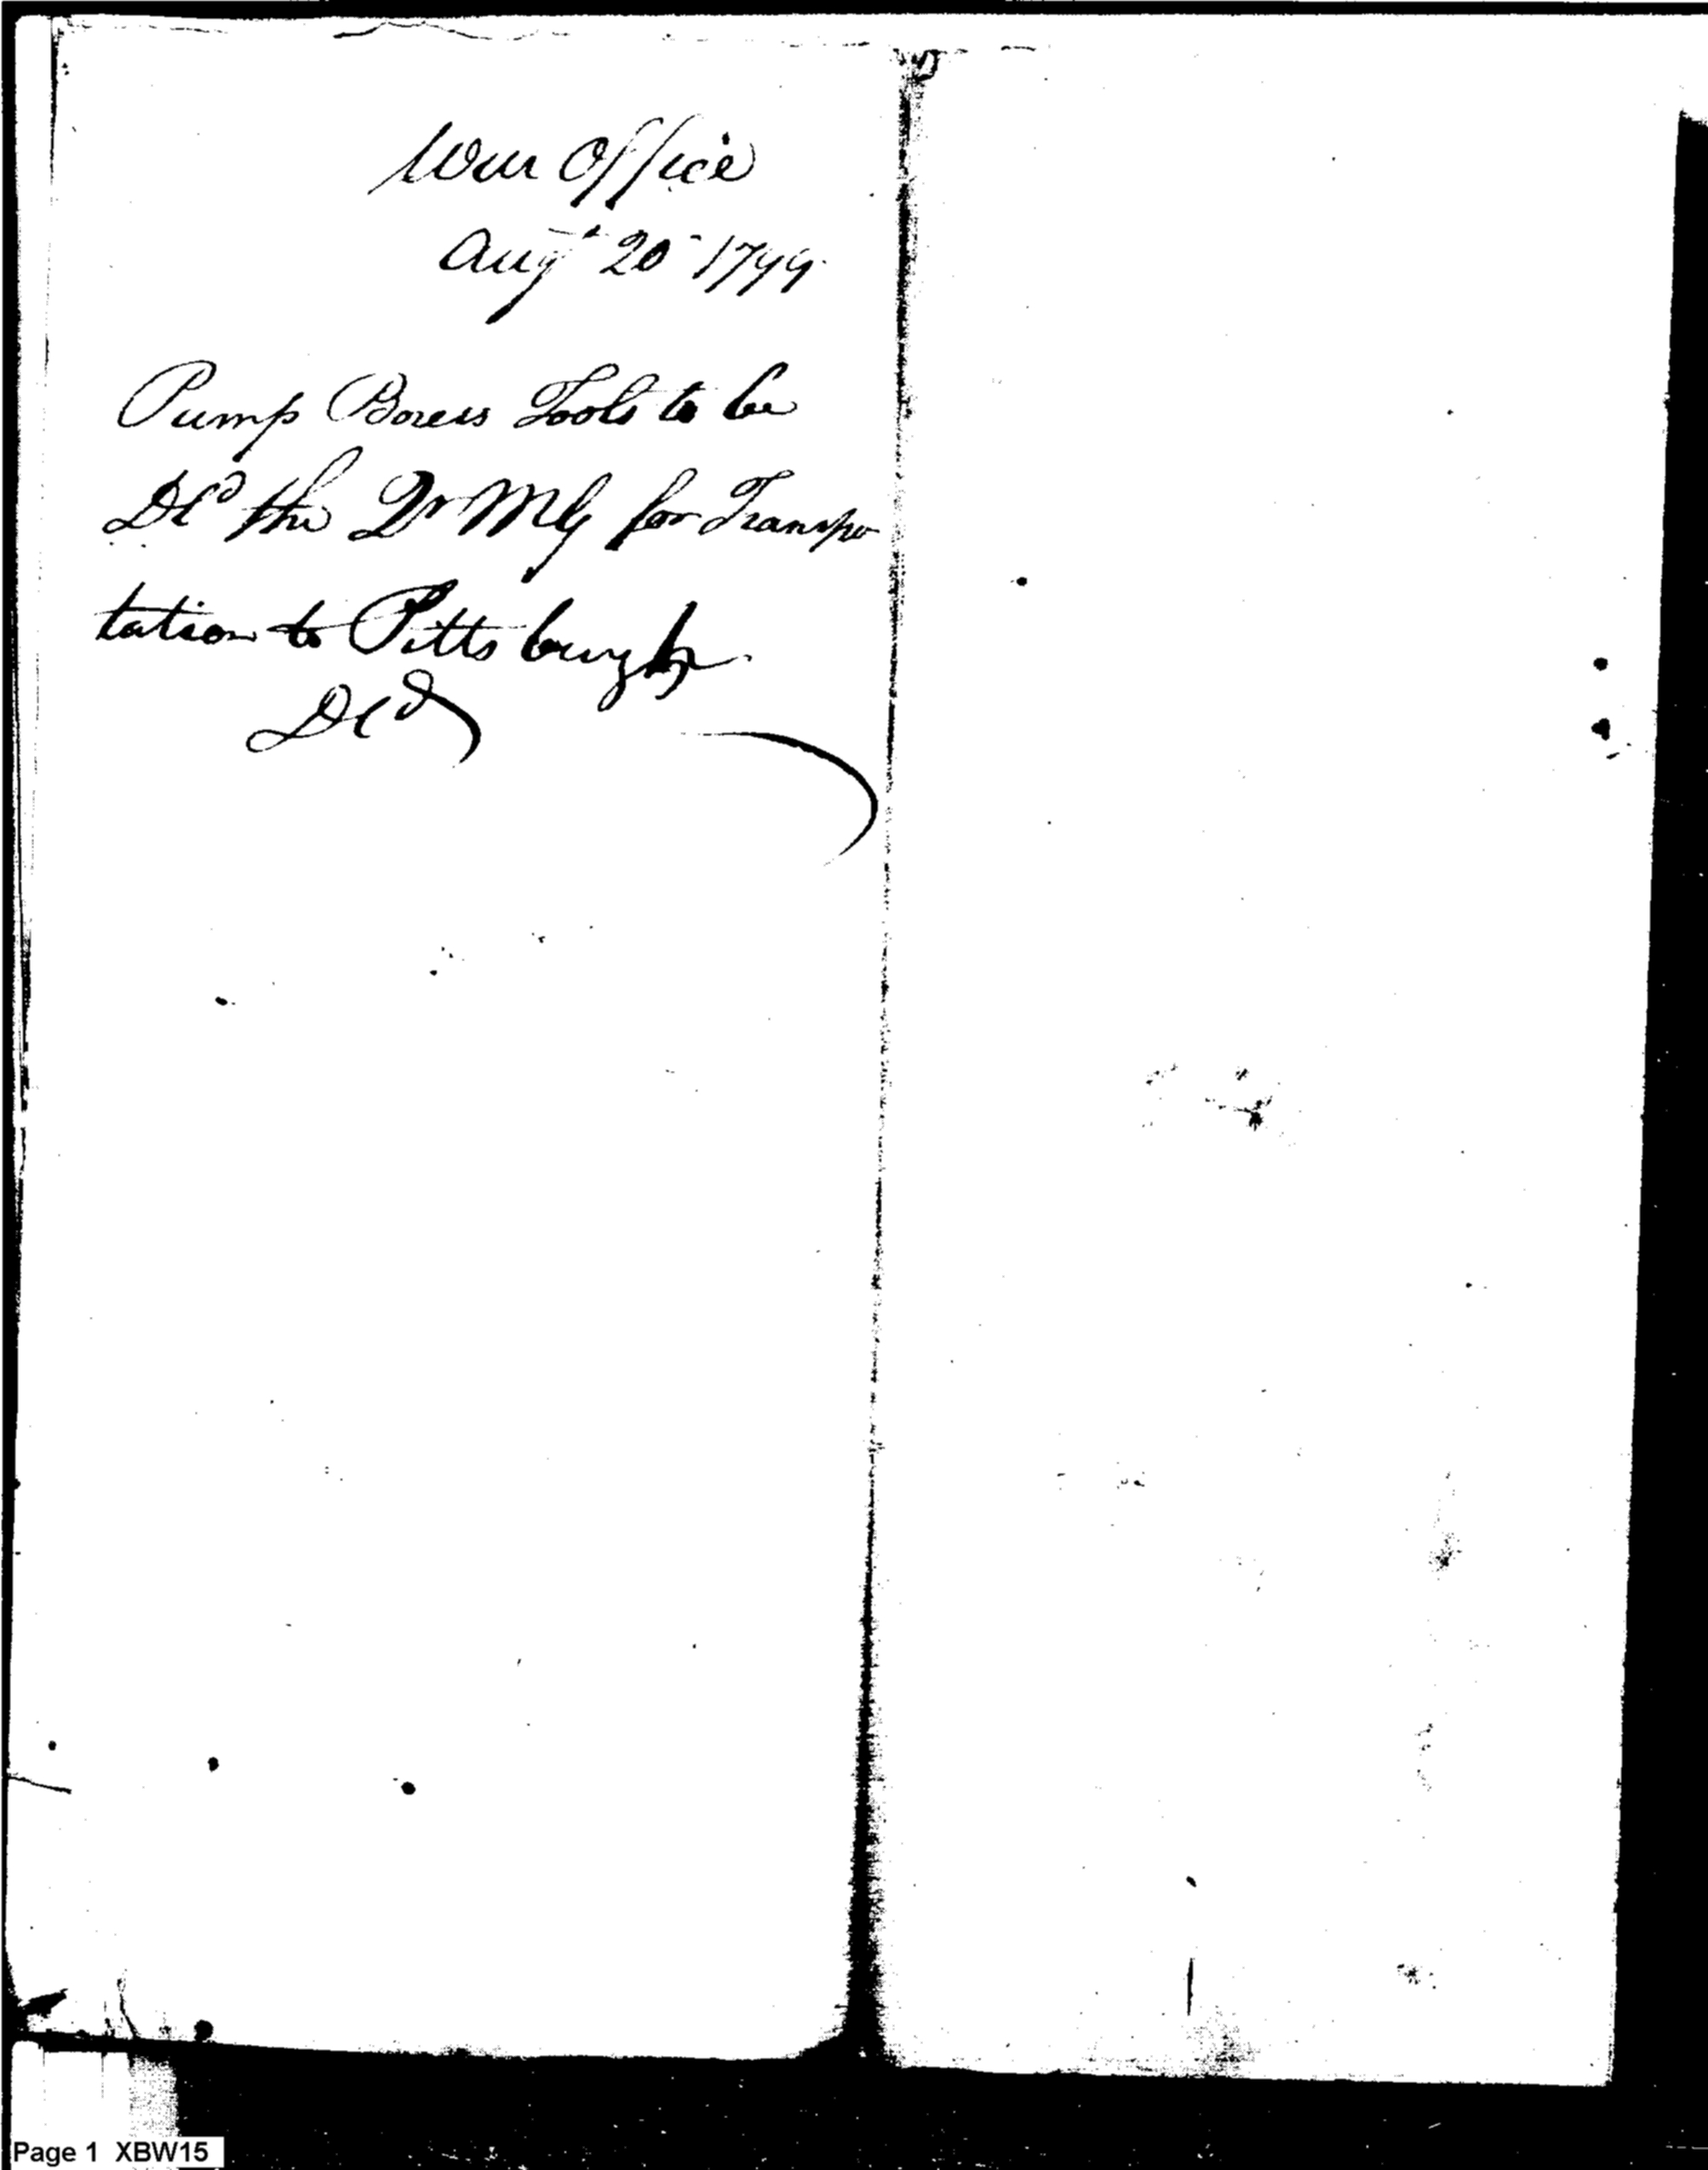 War Office
Augt 20 1799
Pump Borers Tools to be
Dd the Qr M G for Transpo
tation to Pittsburgh
Dd
Page 1 XBW15